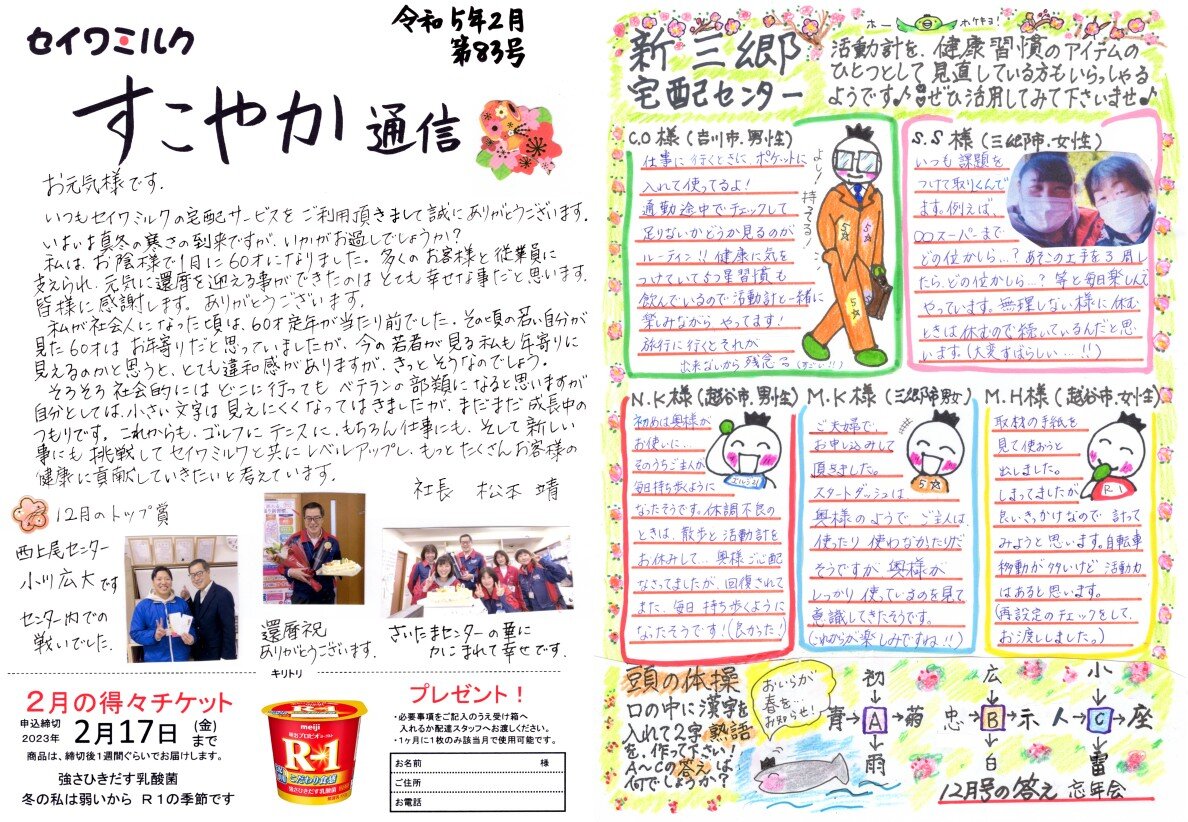 セイワミルク
令和5年2月
第83号
すこやか通信
お元気様です.
いつもセイワミルクの宅配サービスをご利用頂きまして誠にありがとうございます.
いよいよ真冬の寒さの到来ですが、いかがお過しでしょうか?
私は、お陰様で1月に60才になりました。多くのお客様と従業員に
支えられ、元気に還暦を迎える事ができたのはとても幸せな事だと思います.
皆様に感謝します。ありがとうございます.
私が社会人になった頃は、60才定年が当たり前でした。その頃の若い自分が
見た60才はお年寄りだと思っていましたが、今の若者が見る私も年寄りに
見えるのかと思うと、とても違和感がありますが、きっとそうなのでしょう。
そろそろ社会的にはどこに行ってもベテランの部類になると思いますが
自分としては、小さい文字は見えにくくなってはきましたが、まだまだ成長中の
つもりです。これからも、ゴルフにテニスに、もちろん仕事にも、そして新しい
事にも挑戦してセイワミルクと共にレベルアップし、もっとたくさんお客様の
健康に貢献していきたいと考えています.
社長 松本 靖
12月のトップ賞
西上尾センター
小川広大です
センター内での
戦いでした.
還暦祝
ありがとうございます.
さいたまセンターの華に
かこまれて幸せです.
キリトリ
2月の得々チケット
申込締切
2023年 2月17日(金)まで
商品は、締切後1週間ぐらいでお届けします。
強さひきだす乳酸菌
冬の私は弱いから R1の季節です
meiji
明治プロビオヨーグルト
R-1
強さひきだす乳酸菌
プレゼント!
・必要事項をご記入のうえ受け箱へ
入れるか配達スタッフへお渡しください。
・1ヶ月に1枚のみ該当月で使用可能です。
お名前 様
ご住所
お電話
ホーホケキョ!
新三郷
宅配センター
活動計を、健康習慣のアイテムの
ひとつとして見直している方もいらっしゃる
ようです♪ぜひ活用してみて下さいませ♪
C.O様(吉川市.男性)
仕事に行くときにポケットに
入れて使ってるよ!
通勤途中でチェックして
足りないかどうか見るのが
ルーティン!!健康に気を
つけていて5つ星習慣も
飲んでいるので活動計と一緒に
楽しみながらやってます!
旅行に行くとそれが
出来ないから残念。(すごい!!)
よし!
持てる!
5☆
5☆
S.S様(三郷市.女性)
いつも課題を
つけて取りくんで
ます。例えば、
〇〇スーパーまで
どの位かしら…?あそこの土手を3周し
たら、どの位かしら…?等と毎日楽しんで
やっています。無理しない様に休む
ときは休むので続いているんだと思
います。(大変すばらしい…!!)
N.K様(越谷市.男性)
初めは奥様が
お使いに…
そのうちご主人が
毎日持ち歩くように
なったそうです。体調不良の
ときは、散歩と活動計を
お休みして、奥様ご心配
なさってましたが、回復されて
また、毎日持ち歩くように
なったそうです!(良かった!)
M.K様(三郷市男女)
ご夫婦で、
お申し込みして
頂きました。
スタートダッシュは
奥様のようで、ご主人は、
使たり使わなかたりだ
そうですが奥様が
しっかり使っているのを見て
意識してきたそうです。
(これからが楽しみですね!!)
5☆
M.H様(越谷市.女性)
取材の手紙を
見て使おうと
出しました。
しまってましたが
良いきっかけなので計って
みようと思います。自転車
移動が多いけど活動力
はあると思います。
(再設定のチェックをして、
お渡ししました。)
R1
頭の体操
口の中に漢字を
入れて2字熟語
を、作って下さい!
A〜Cの答えは
何でしょうか?
おいらが
春を、
お知らせ!
初
青→A→菊
雨
広
忠→B→示
白
小
人→C→座
雷
12月号の答え 忘年会